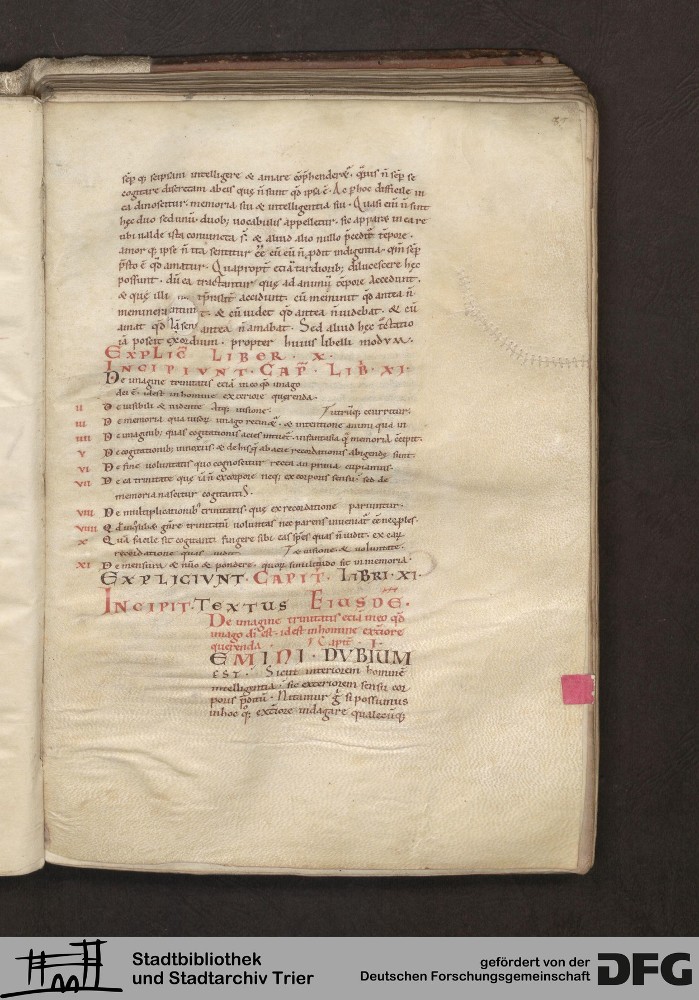 37
sēp q; seipsum intelligere & amare cōp̄henderet̄. q̄uis n̄ sēp se
cogitare discretam ab eis quę n̄ sunt qd̄ ipsa ē. Ac p hoc difficile in
ea dinoscitur memoria sui & intelligentia sui. Quasi eni n̄ sint
hęc duo sed unū duob; uocabulis appelletur. sic apparet in ea re
ubi ualde ista coniuncta s̄. & aliud alio nullo p̄cedit̄ tēpore.
amor q; ipse n̄ ita sentitur ēē cū eū n̄ p̄dit indigentia. qm̄ sēp
p̄sto ē qd̄ amatur. Quapropt̄ eciā tardiorib; dilucescere hęc
possunt. dū ea tractantur quę ad animū tēpore accedunt.
& quę illi tēporalit̄ accidunt. cū meminit qd̄ antea n̄
meminerat & cū uidet qd̄ antea n̄ uidebat. & cū
amat qd̄ antea n̄ amabat. Sed aliud hęc tractatio
iā poscit exordium. propter huius libelli modum.
EXPLIC̄ LIBER. X.
INCIPIVNT. CAP̄. LIB̄. XI.
De imagine trinitatis eciā in eo qd̄ imago
dei ē. idest in homine exteriore querenda.
II De uisibili & uidente atq; uisione. utriq; couritur.
III De memoria qua uisor; imago retinet̄. & intentione animi qua in
IIII De imaginib; quas cogitationis acies intuet̄.
V De cogitationib; innoxiis. & de his q̄ ab acie recordationis abigendę sunt.
VI De fine uoluntatis quo cognoscitur recta an praua cupiamus.
VII De ea trinitate quę iā n̄ ex corpore neq; ex corporis sensu. sed de
memoria nascitur cogitantis.
VIII De multiplicationib' trinitatis. quę ex recordatione pariuntur.
VIIII
X Quā facile sit cogitanti fingere sibi eas sp̄es quas n̄ uidit. ex eaꝝ
recordatione quas uidit. & uisione. & uoluntate.
XI De mensura & nūo & pondere. quoꝝ similitudo sit in memoria.
EXPLICIVNT. CAPIT̄. LIBRI. XI.
INCIPIT. TEXTUS EIUSDĒ.
De imagine trinitatis eciā in eo qd̄
imago di est. idest in homine ext̄iore
querenda. Capit̄. I.
EMINI. DVBIUM
EST. Sicut interiorem hominē
intelligentia. sic exteriorem sensu cor
poris p̄ditū. Nitamur g̊ si possumus
in hoc q; ext̄iore indagare qualecūq;
Stadtbibliothek
und Stadtarchiv Trier
gefördert von der
Deutschen Forschungsgemeinschaft
DFG